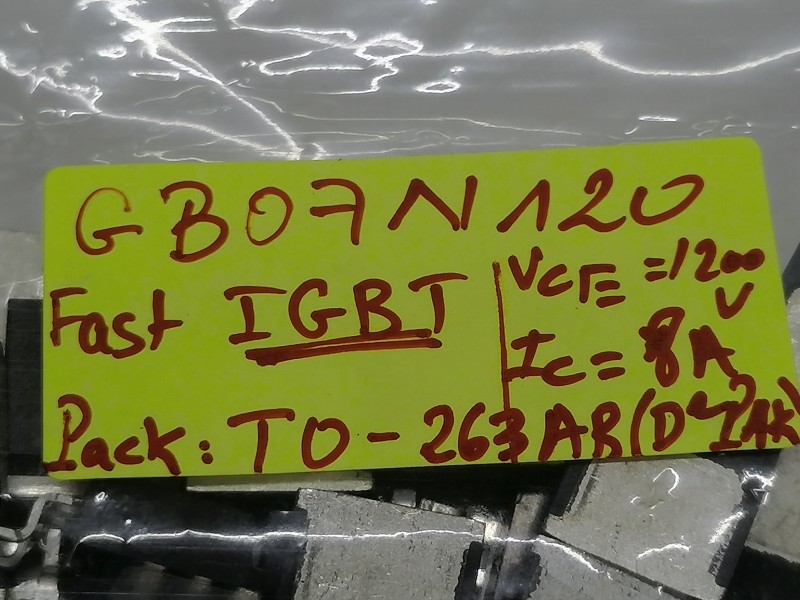 GB07N120
Fast IGBT
VCE = 1200 V
IC = 8A
Pack: TO-263AB (D²PAK)